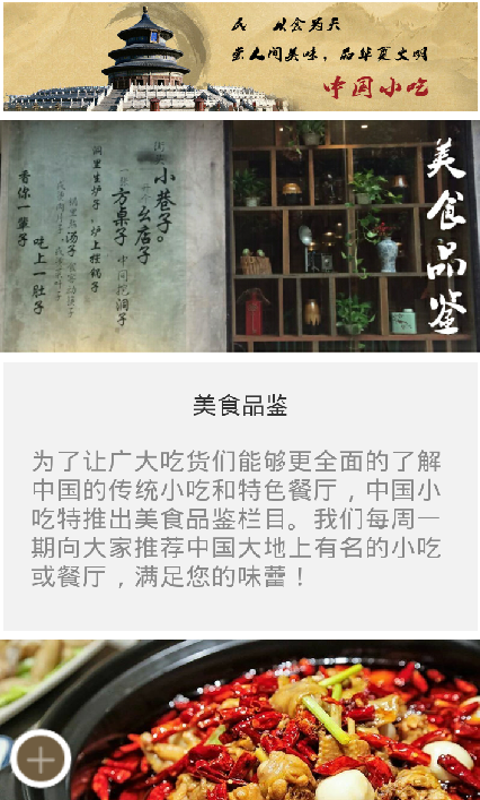 民 以食为天
尝人间美味，品华夏文明
中国小吃
街头小巷子。
开个么店子
一张方桌子
中间挖洞子
洞里生炉子
炉上摆锅子
锅里熬汤子
食客动筷子
香你一辈子
吃上一肚子
美食品鉴
美食品鉴
为了让广大吃货们能够更全面的了解
中国的传统小吃和特色餐厅，中国小
吃特推出美食品鉴栏目。我们每周一
期向大家推荐中国大地上有名的小吃
或餐厅，满足您的味蕾！